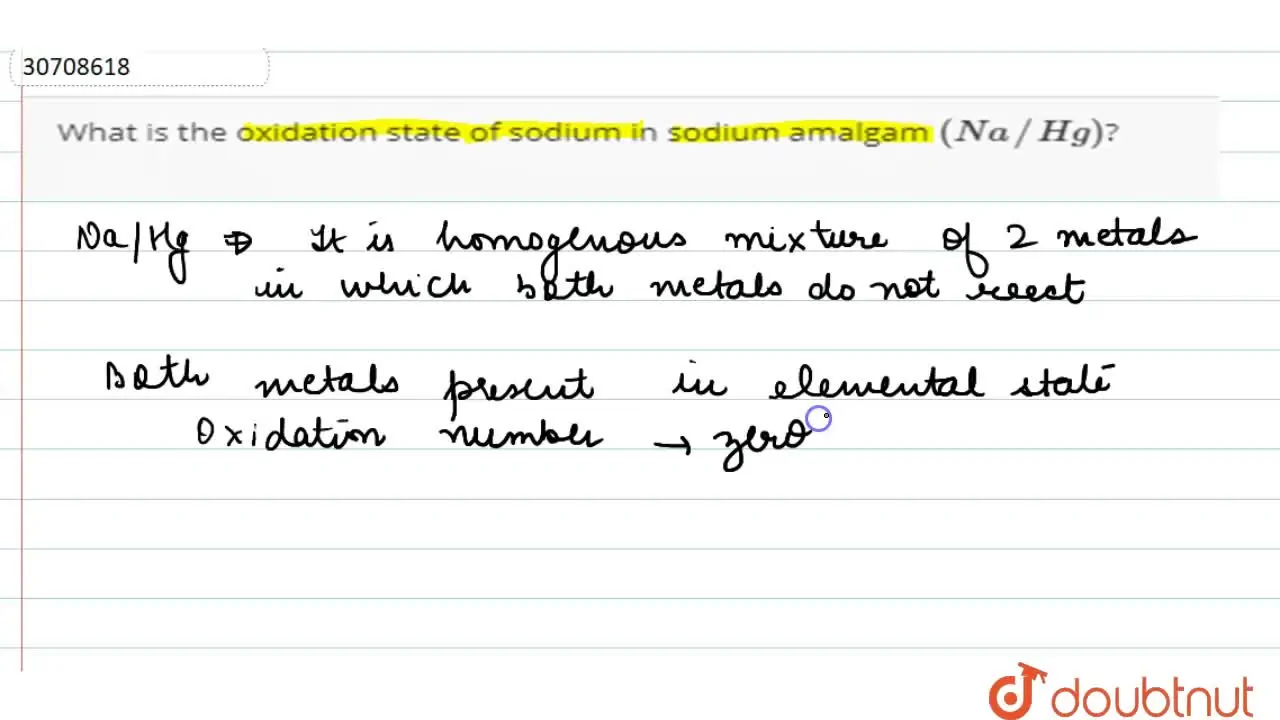 30708618
What is the oxidation state of sodium in sodium amalgam (Na / Hg)?
Na/Hg ⇒ It is homogenous mixture of 2 metals
in which both metals do not react
Both metals present in elemental state
Oxidation number → zero
doubtnut